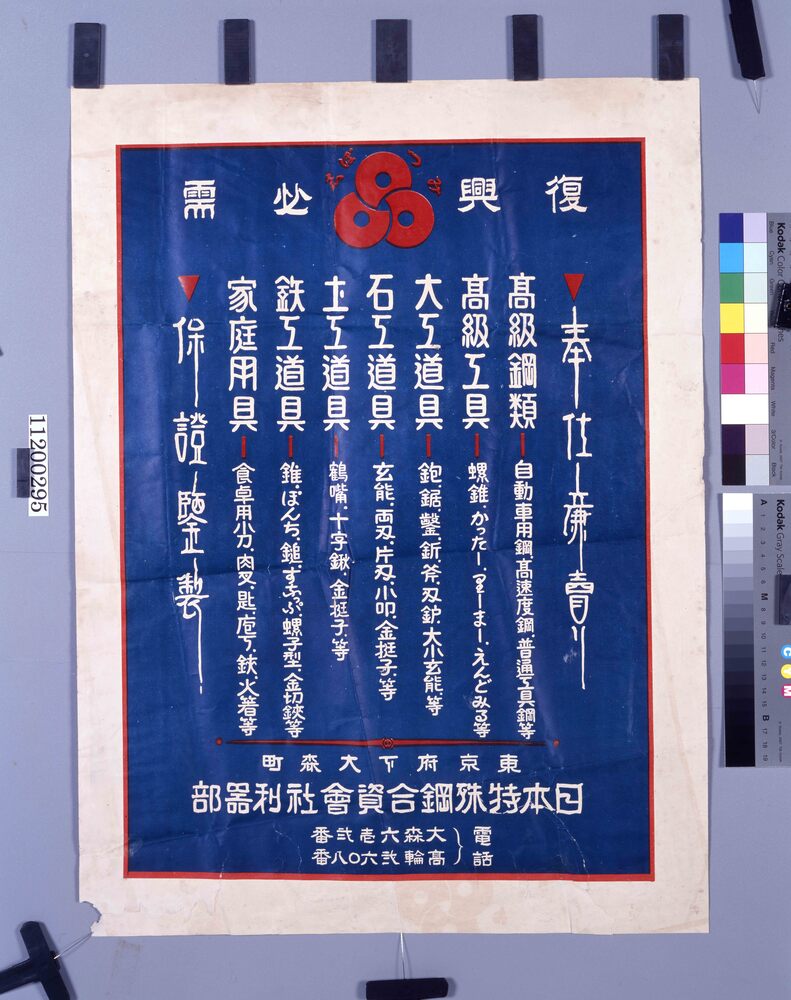 復興必需
みつぼし
奉仕廉賣
高級鋼類｜自動車用鋼.高速度鋼.普通工具鋼等
高級工具｜螺錐.かったー.りーまー.えんどみる等
大工道具｜鉋.鋸.鑿.釿.斧.刄鈩.大小玄能等
石工道具｜玄能.両刄.片刄.小叩.金挺子等
土工道具｜鶴嘴.十字鍬.金挺子.等
鉄工道具｜錐.ぽんち.鎚.すなっぷ.螺子型.金切鋏等
家庭用具｜食卓用小刀.肉叉.匙.庖丁.鋏.火箸等
保證鑒製
東京府下大森町
日本特殊鋼合資會社利器部
電話
大森六壱弐番
高輪弐六〇八番
11200295
Kodak Color
Kodak Gray Scale